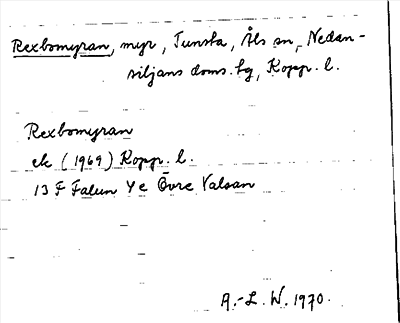 Rexbomyran, myr, Tunsta, Åls sn, Nedan-
siljans doms. tg, Kopp. l.
Rexbomyran
ek (1969) Kopp. l.
13 F Falun 4 e Övre Valsan
A.-L. W. 1970.